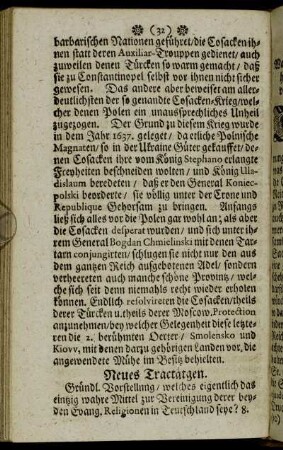 (32)
barbarischen Nationen geführet/die Cosacken ih-
nen statt deren Auxiliar-Trouppen gedienet/ auch
zuweilen denen Türcken so warm gemacht/ daß
sie zu Constantinopel selbst vor ihnen nicht sicher
gewesen. Das andere aber beweiset am aller-
deutlichsten der so genandte Cosacken-Krieg/wel-
cher denen Polen ein unaussprechliches Unheil
zugezogen. Der Grund zu diesem Krieg wurde
in dem Jahr 1637. geleget/ da etliche Polnische
Magnaten/ so in der Ukraine Güter gekauffet/ de-
nen Cosacken ihre vom König Stephano erlangte
Freyheiten beschneiden wolten/ und König Ula-
dislaum beredeten/ daß er den General Koniec-
polski beorderte/ sie völlig unter der Crone und
Republique Gehorsam zu bringen. Anfangs
ließ sich alles vor die Polen gar wohl an; als aber
die Cosacken desperat wurden/ und sich unter ih-
rem General Bogdan Chmielinski mit denen Tar-
tarn conjungirten/ schlugen sie nicht nur den aus
dem gantzen Reich aufgebotenen Adel/ sondern
verheereten auch manche schöne Provintz/ wel-
che sich seit dem niemahls recht wieder erholen
können. Endlich resolvireten die Cosacken/theils
derer Türcken u.theils derer Moscow.Protection
anzunehmen/bey welcher Gelegenheit diese letzte-
ren die 2. berühmten Oerter/ Smolensko und
Kiovv, mit denen darzu gehörigen Landen vor, die
angewendete Mühe im Besitz behielten.
Neues Tractätgen.
Gründl. Vorstellung/ welches eigentlich das
eintzig wahre Mittel zur Vereinigung derer bey-
den Evang. Religionen in Teutschland seye? 8.